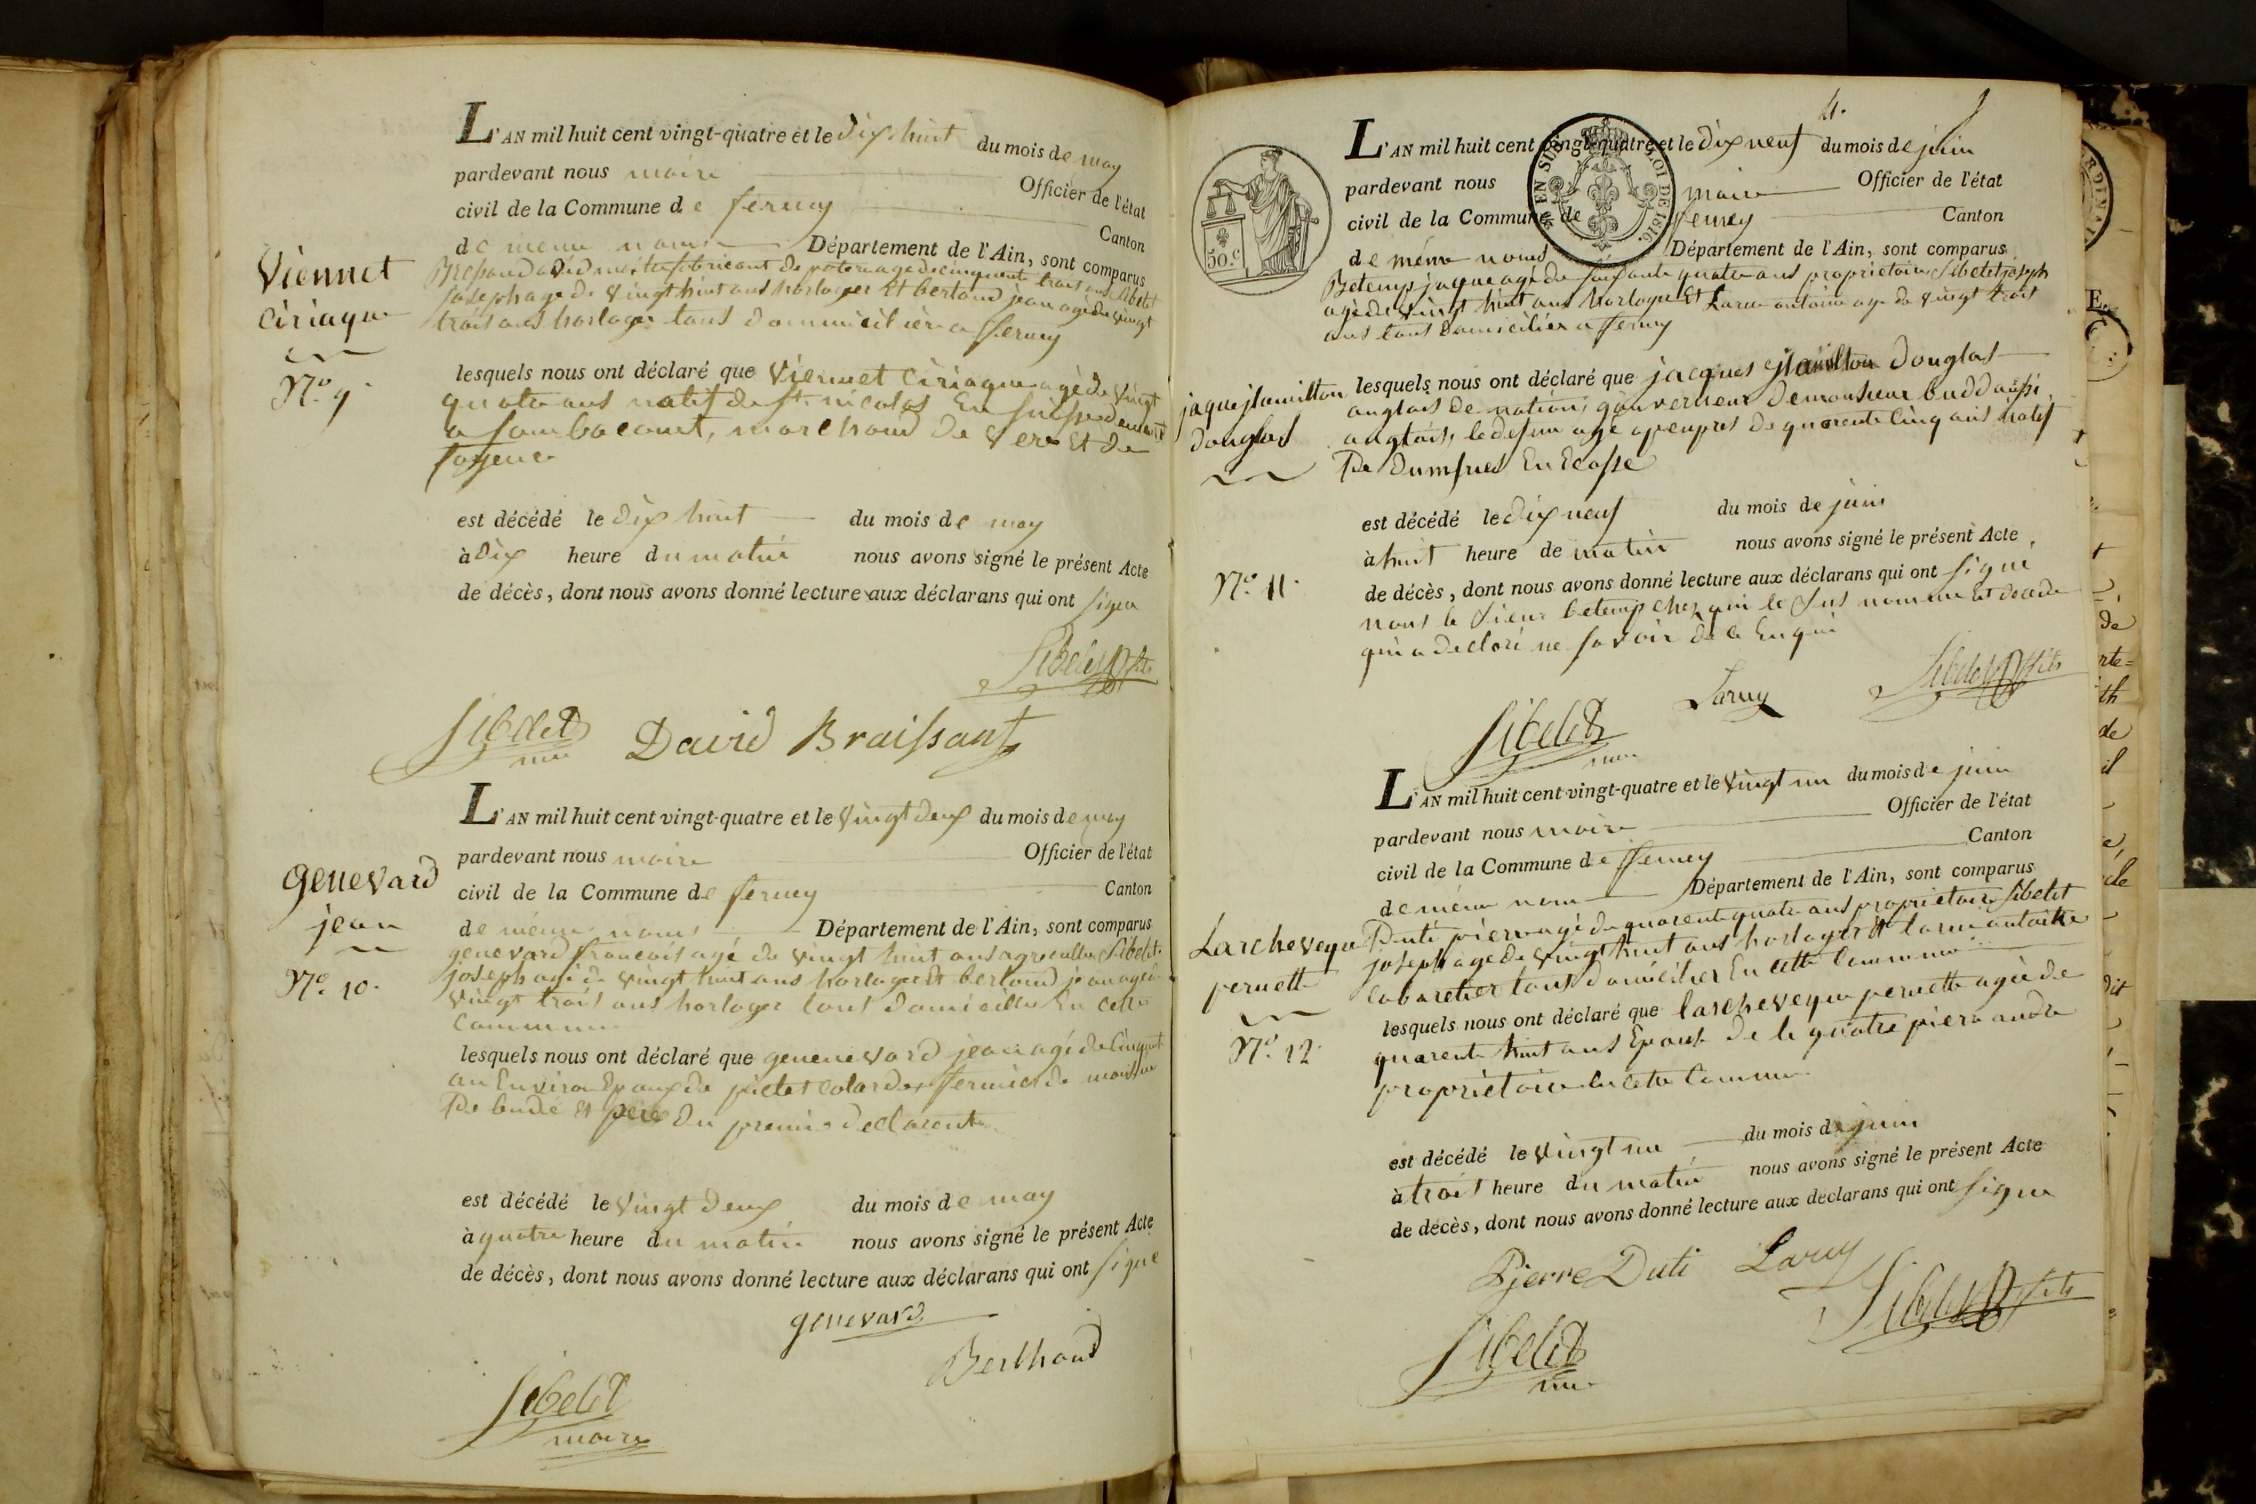 L'AN mil huit cent vingt-quatre et le dix huit du mois de may
pardevant nous maire Officier de l'état
civil de la Commune de ferney Canton
de meme nom Département de l'Ain, sont comparus
david fabricant de agé de cinquante trois ans Sibelet
joseph agé de vingt huit ans horloger Et bertoud jean agé de vingt
trois ans horloger tous a ferney
Viennet
Ciriaque
N.º 9.
lesquels nous ont déclaré que Viennet Ciriaque agé de vingt
quatre ans natif de St. nicolas En
a marchand de vere Et de
fayence
est décédé le dix huit du mois de may
à dix heure du matin nous avons signé le présent Acte
de décès, dont nous avons donné lecture aux déclarans qui ont signé
Sibelet fils
Sibelet
David Braissant
L'AN mil huit cent vingt-quatre et le vingt deux du mois de may
pardevant nous maire Officier de l'état
civil de la Commune de ferney Canton
de méme nom Département de l'Ain, sont comparus
genevard
jean
N.º 10.
genevard francois agé de vingt huit ans agriculteur Sibelet
joseph agé de vingt huit ans horloger Et bertoud jean agé de
vingt trois ans horloger tous En cette
commune
lesquels nous ont déclaré que genevard jean agé de Cinquante
an Environ Epoux de fermier de
De budé Et pere Du premier declarent
est décédé le vingt deux du mois de may
à quatre heure du matin nous avons signé le présent Acte
de décès, dont nous avons donné lecture aux déclarans qui ont signé
genevard
Berthoud
Sibelet
maire
4.
L'AN mil huit cent vingt-quatre et le dix neuf du mois de juin
pardevant nous maire Officier de l'état
civil de la Commune de ferney Canton
de méme nom Département de l'Ain, sont comparus
EN SUS LOI DE 1816.
50.c
Betemp jaque agé de soixante quatre ans proprietaire Sibelet joseph
agé de vingt huit ans horloger Et Larue antoine agé de vingt trois
ans tous domiciliés a ferney
jaque hamilton
douglas
N.º 11.
lesquels nous ont déclaré que jacques hamilton douglas
anglois de nation, gouverneur de monsieur budd aussi
anglois, le defun agé apeupres de quarente cinq ans natif
De Dumfries En Ecosse
est décédé le dix neuf du mois de juin
à huit heure de matin nous avons signé le présent Acte
de décès, dont nous avons donné lecture aux déclarans qui ont signé
nons le Sieur betemp chez qui le Sus nommé est decedé
qui a declaré ne savoir de ce Enquis
Sibelet
Laruy
Sibelet fils
L'AN mil huit cent vingt-quatre et le vingt un du mois de juin
pardevant nous maire Officier de l'état
civil de la Commune de ferney Canton
de méme nom Département de l'Ain, sont comparus
Larcheveque
pernette
N.º 12.
Duti pierre agé de quarente quatre ans proprietaire Sibelet
joseph agé de vingt huit ans horloger Et larue antoine
cabaretier tous domiciliés En cette Commune
lesquels nous ont déclaré que larcheveque pernette agée de
quarente huit ans Epouse de pierre andré
propriétaire En cette Commune
est décédé le vingt un du mois de juin
à trois heure du matin nous avons signé le présent Acte
de décès, dont nous avons donné lecture aux déclarans qui ont signé
Pierre Duti
Laruy
Sibelet fils
Sibelet